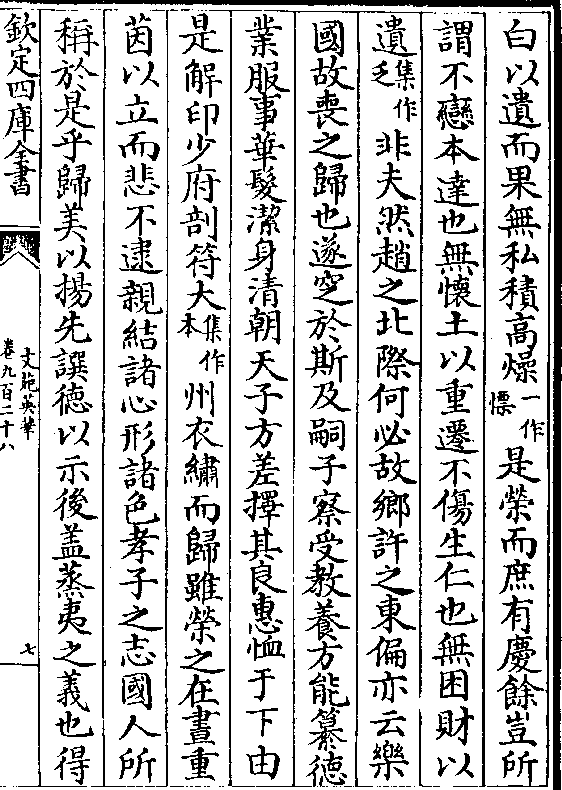 白以遺而果無私積高燥一作慄是榮而庶有慶餘豈所
謂不戀本達也無懷土以重遷不傷生仁也無困財以
遺集作乏非夫然趙之北際何必故鄉許之東偏亦云樂
國故喪之歸也遂空於斯及嗣子察受教養方能纂德
業服事華髮潔身清朝天子方差擇其良惠恤于下由
是解印少府剖符大集作本州衣繡而歸雖榮之在晝重
茵以立而悲不逮親結諸心形諸色孝子之志國人所
稱於是乎歸美以揚先譔德以示後蓋蒸夷之義也得
欽定四庫全書
文苑英華
卷九百二十八
七